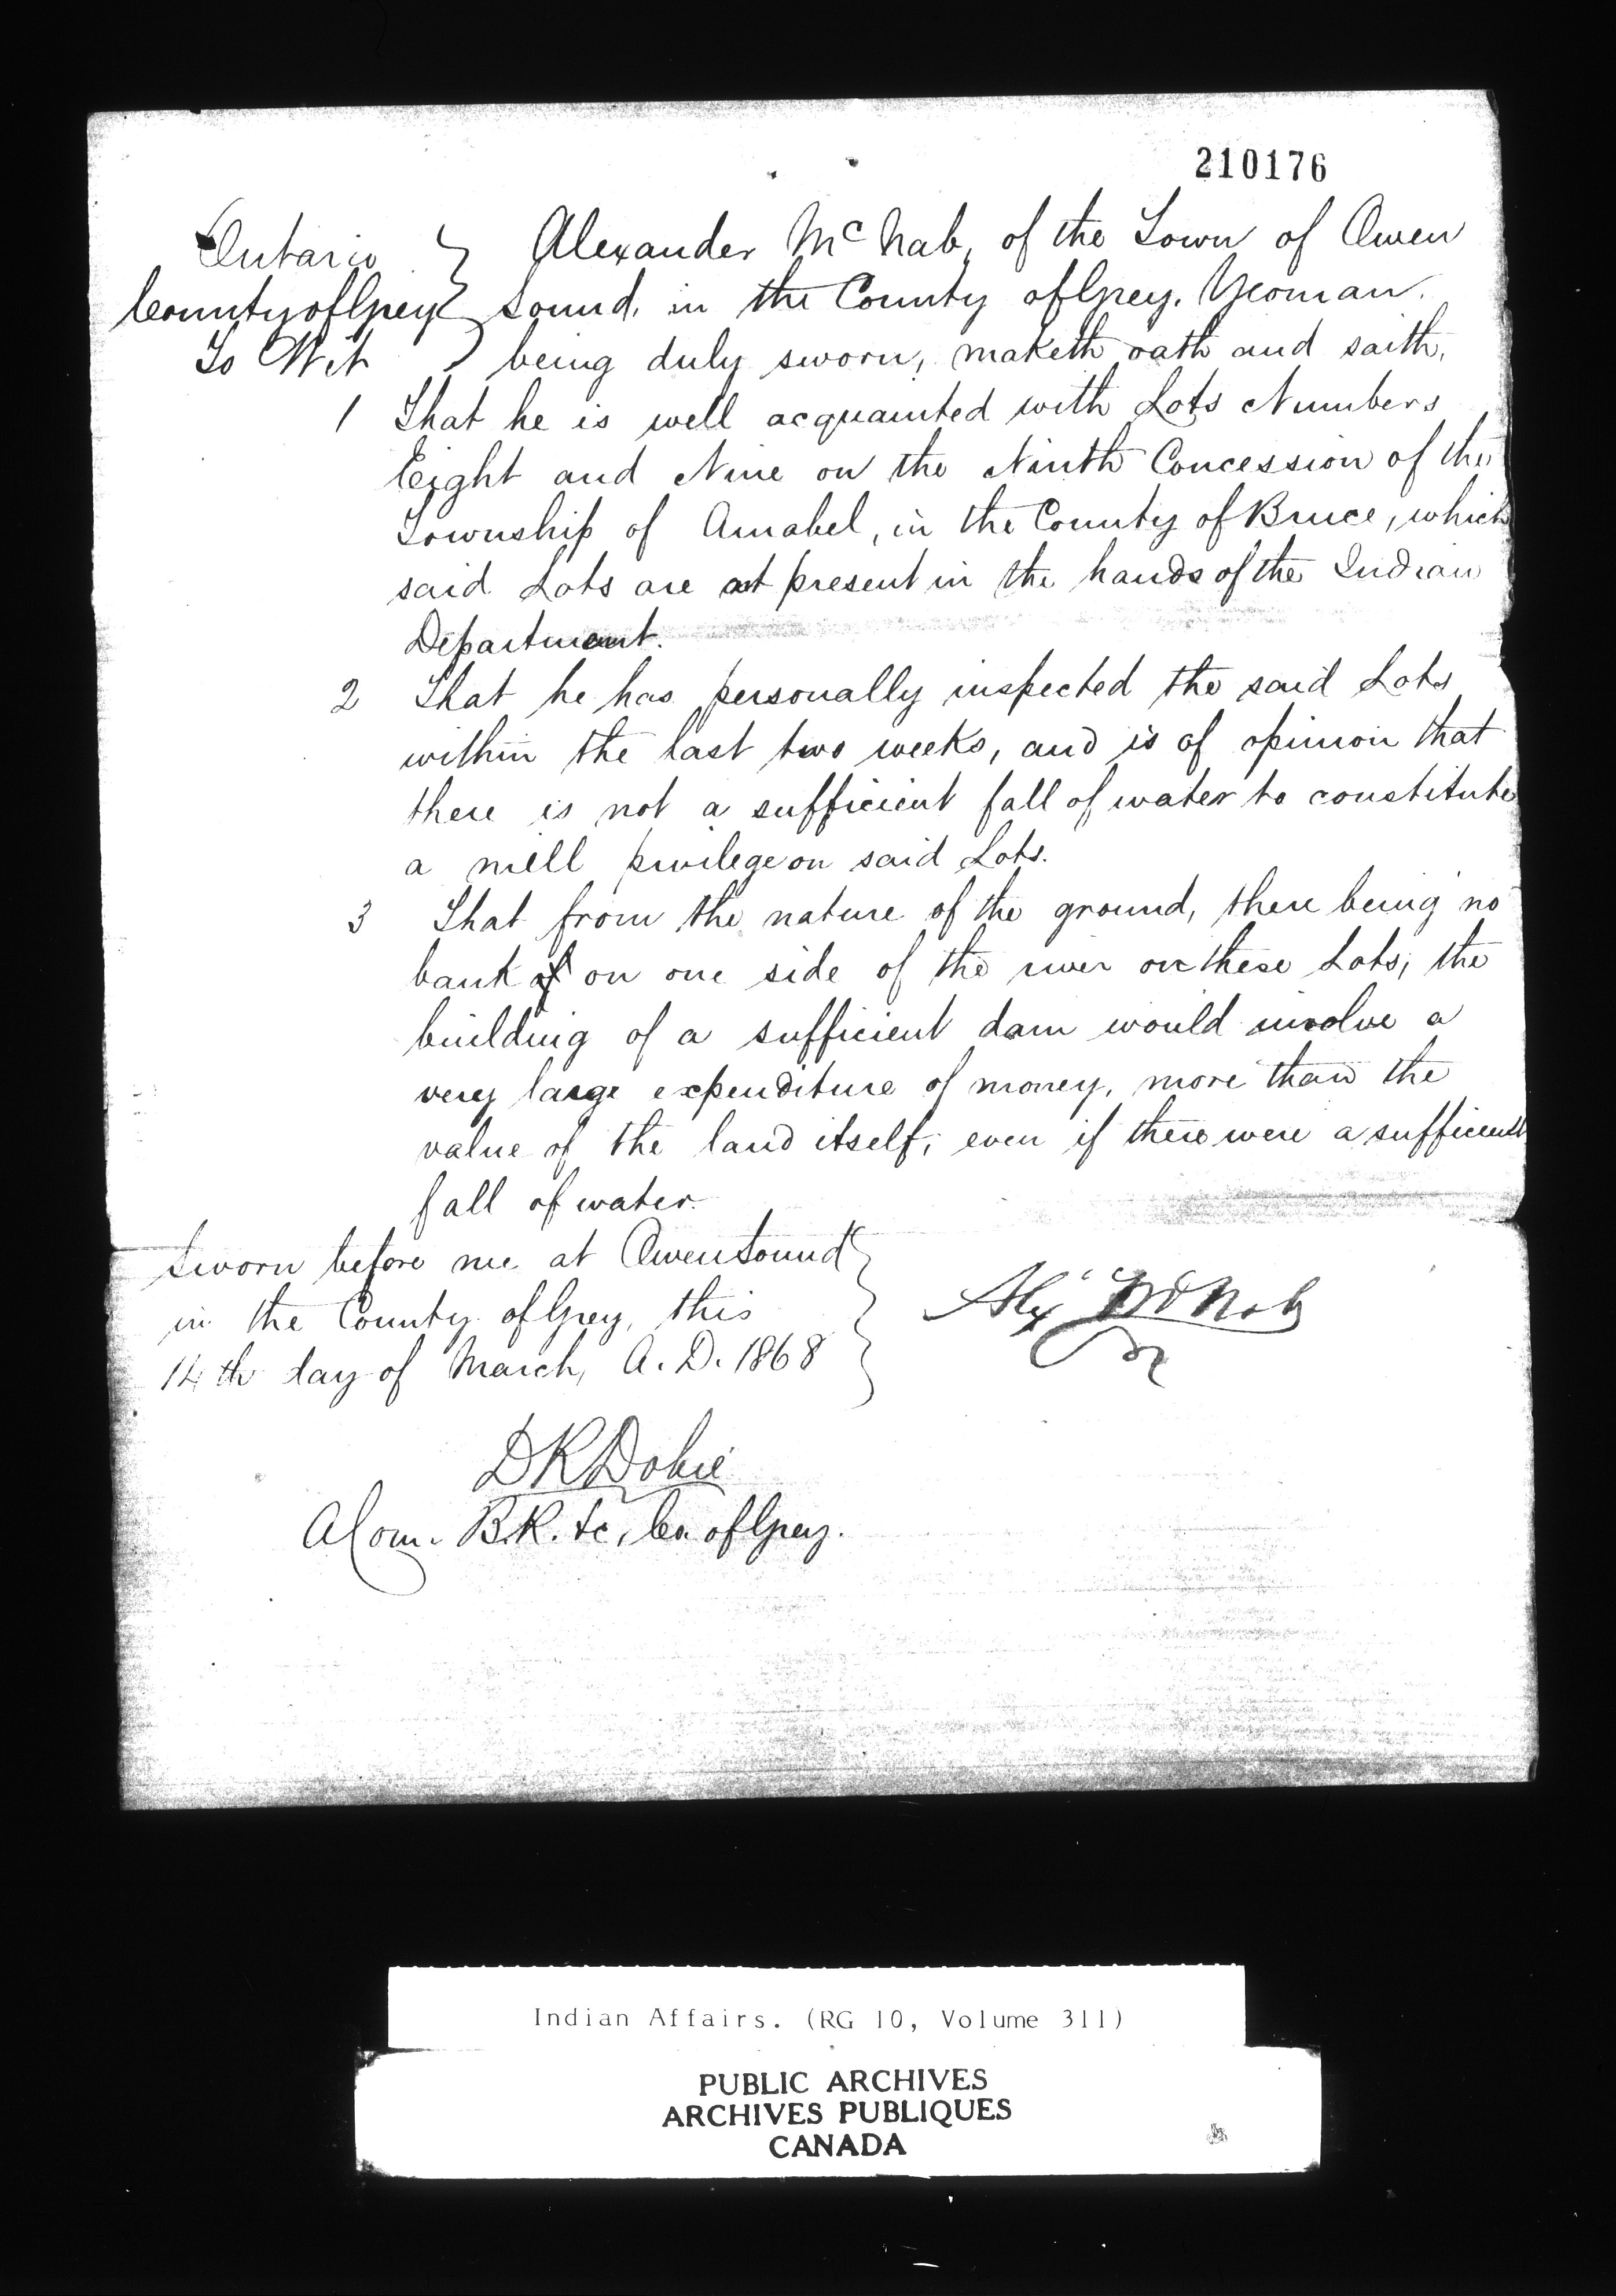 210176
Ontario } Alexander McNab, of the Town of Owen
County of Grey } Sound, in the County of Grey, Yeoman.
To Wit } being duly sworn, maketh oath and saith,
1 That he is well acquainted with Lots Numbers
Eight and Nine on the Ninth Concession of the
Township of Amabel, in the County of Bruce, which
said Lots are at present in the hands of the Indian
Department.
2 That he has personally inspected the said Lots
within the last two weeks, and is of opinion that
there is not a sufficient fall of water to constitute
a mill privilege on said Lots.
3 That from the nature of the ground, there being no
bank of on one side of the river on these Lots, the
building of a sufficient dam would involve a
very large expenditure of money, more than the
value of the land itself; even if there were a sufficient
fall of water.
Sworn before me at Owen Sound }
in the County of Grey, this } Alex McNab
14th day of March, A.D. 1868 }
DRDobie
A Com. B.R. &c, Co. of Grey.
Indian Affairs. (RG 10, Volume 311)
PUBLIC ARCHIVES
ARCHIVES PUBLIQUES
CANADA